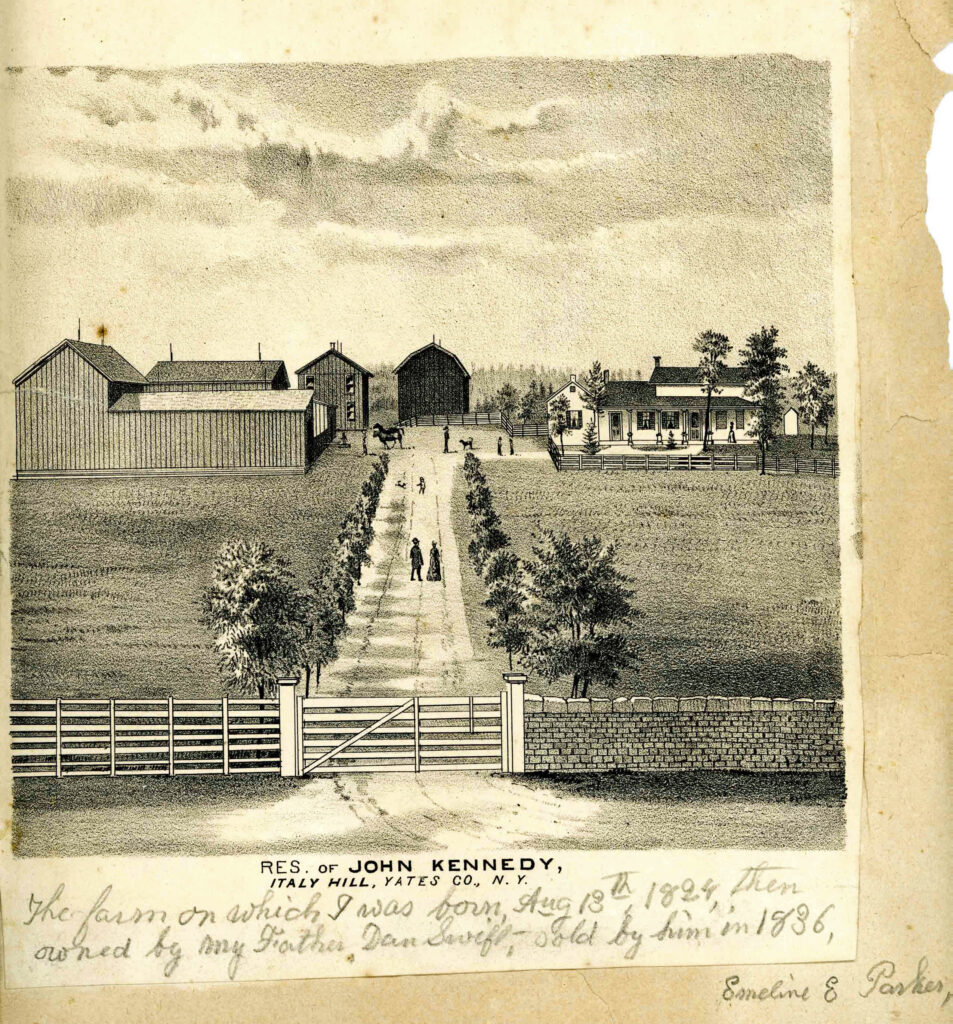 RES. OF JOHN KENNEDY,
ITALY HILL, YATES CO., N. Y.
The farm on which I was born, Aug 13th, 1824, then
owned by my Father, Dan Swift, sold by him in 1836,
Emeline E Parker,